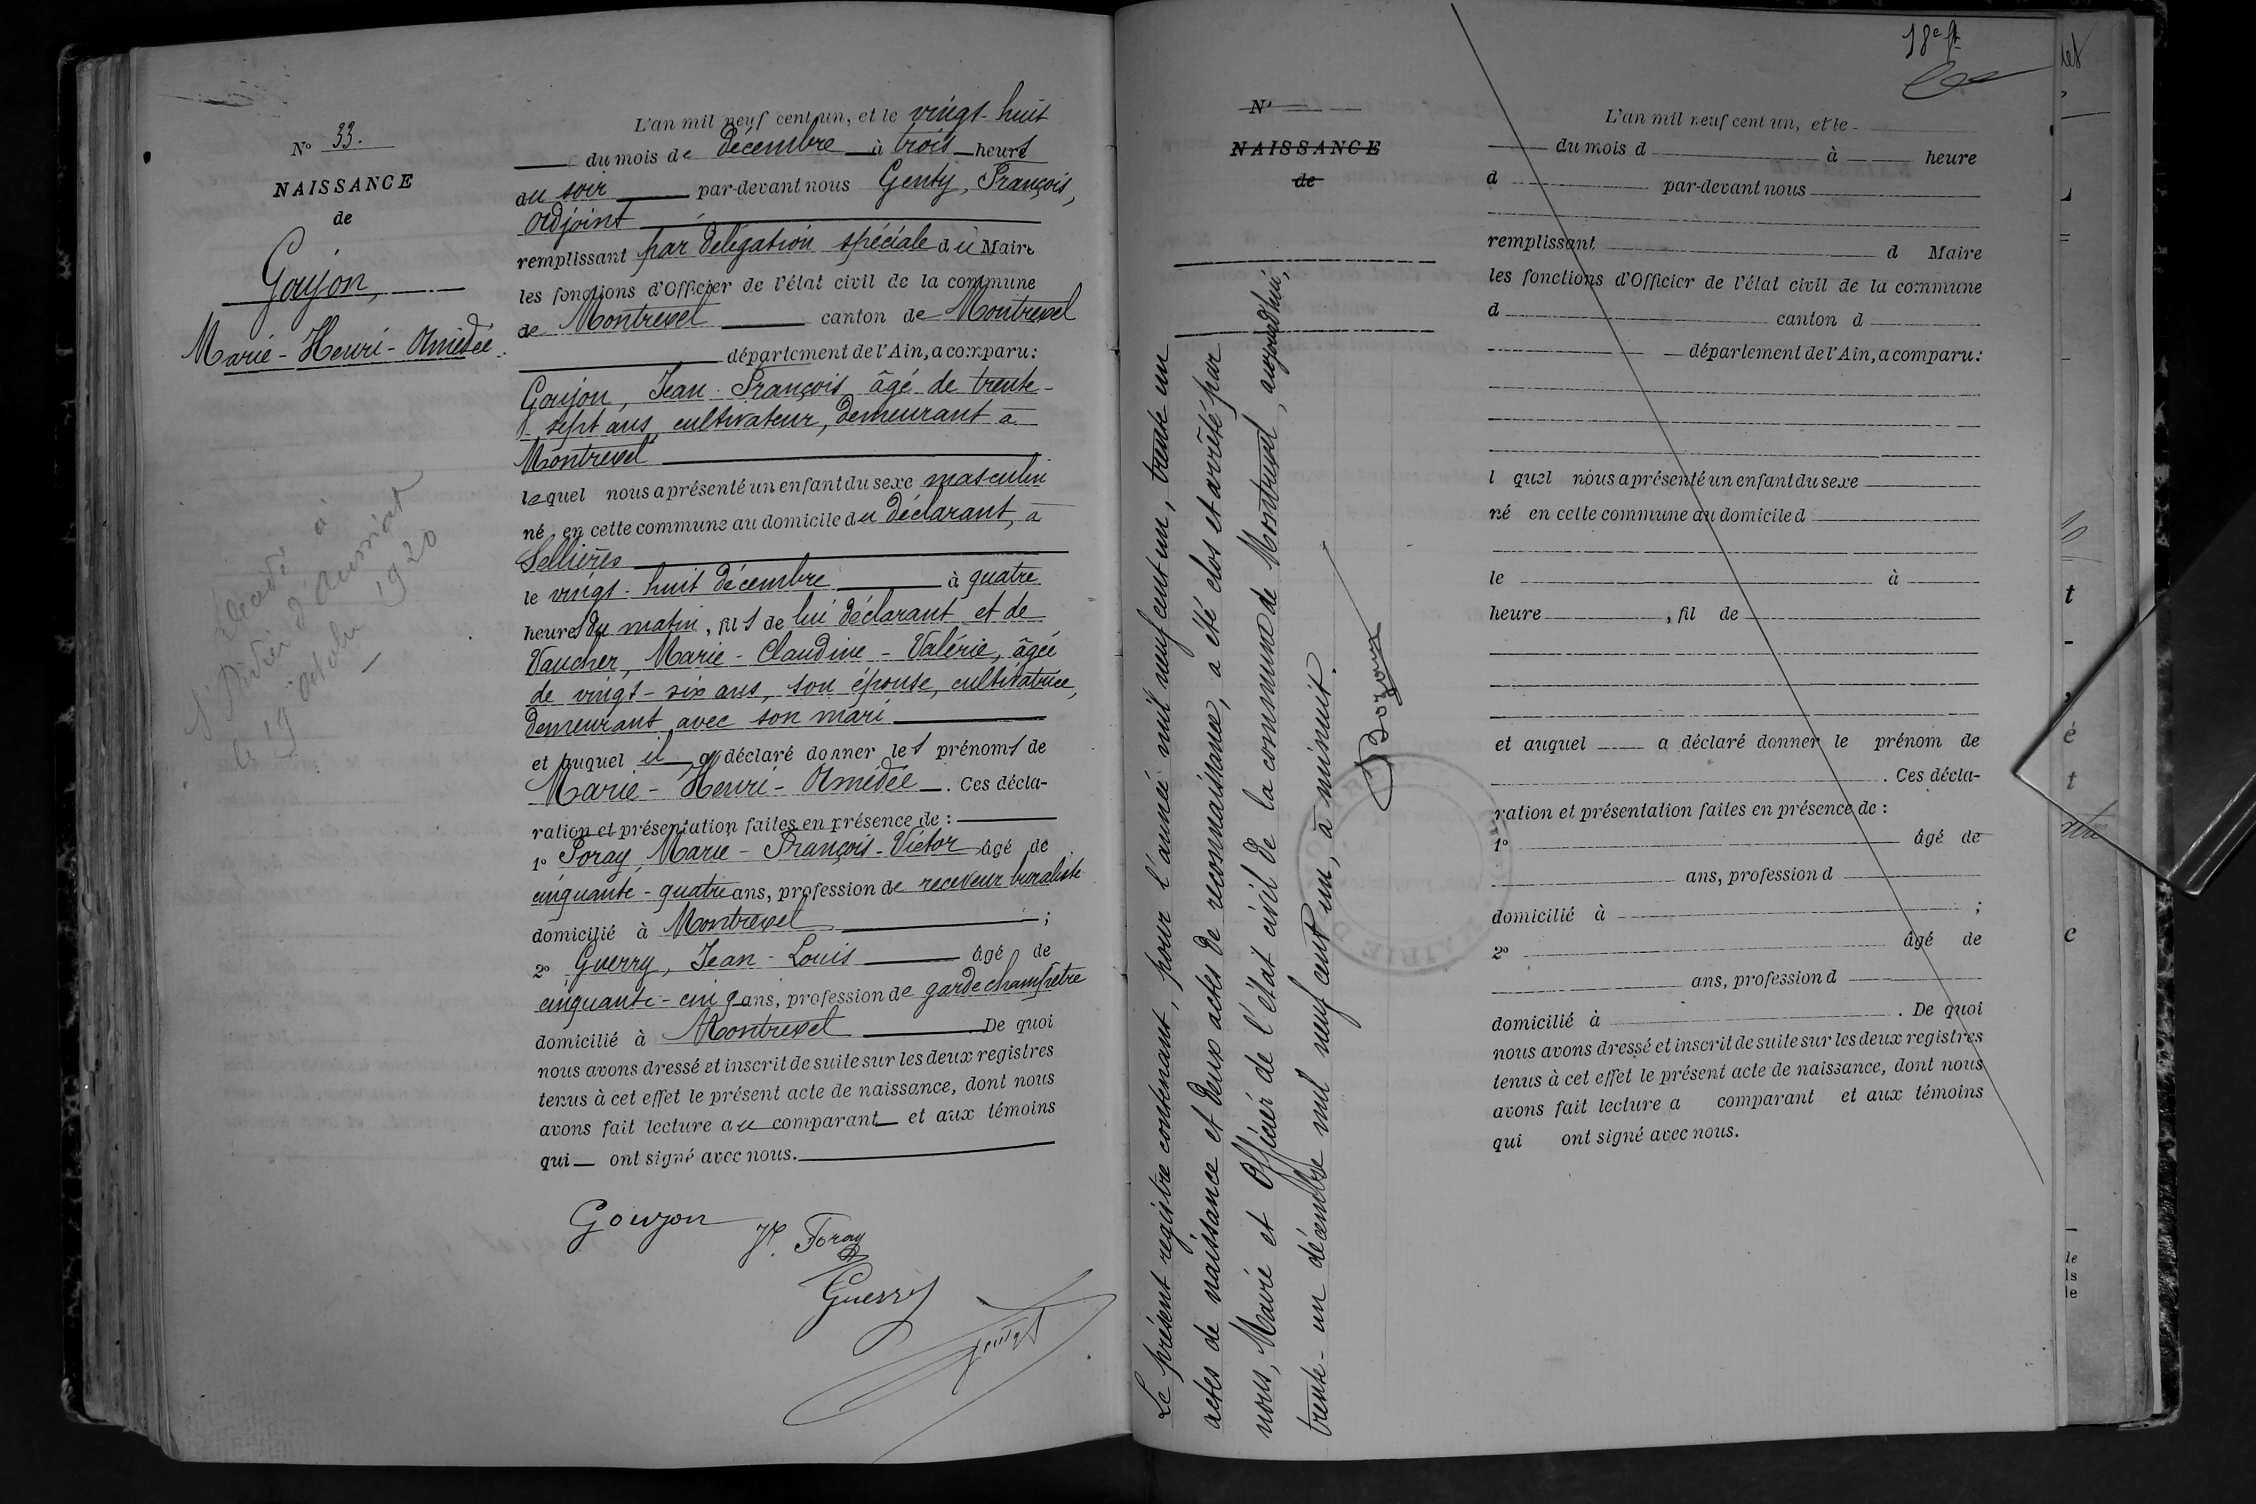 N° 33.
NAISSANCE
de
Goujon,
Marie-Henri-Amédée.
Décédé à
St Didier d'Aussiat
le 19 octobre 1920
L'an mil neuf cent un, et le vingt-huit
du mois de décembre à trois heures
du soir par-devant nous Genty, François,
adjoint
remplissant par délégation spéciale du Maire
les fonctions d'Officier de l'état civil de la commune
de Montrevel canton de Montrevel
département de l'Ain, a comparu:
Goujon, Jean-François, âgé de trente-
sept ans, cultivateur, demeurant à
Montrevel
lequel nous a présenté un enfant du sexe masculin
né en cette commune au domicile du déclarant, à
Sellières
le vingt-huit décembre à quatre
heures du matin, fils de lui déclarant et de
Vaucher, Marie-Claudine-Valérie, âgée
de vingt-six ans, son épouse, cultivatrice,
demeurant avec son mari
et auquel il a déclaré donner les prénoms de
Marie-Henri-Amédée. Ces décla-
ration et présentation faites en présence de :
1° Foray, Marie-François-Victor âgé de
cinquante-quatre ans, profession de receveur buraliste
domicilié à Montrevel ;
2° Guerry, Jean-Louis âgé de
cinquante-cinq ans, profession de garde champêtre
domicilié à Montrevel De quoi
nous avons dressé et inscrit de suite sur les deux registres
tenus à cet effet le présent acte de naissance, dont nous
avons fait lecture au comparant et aux témoins
qui ont signé avec nous.
Goujon
Foray
Guerry
Genty
Le présent registre contenant, pour l'année mil neuf cent un, trente un
actes de naissance et deux actes de reconnaissance, a été clos et arrêté par
nous, Maire et Officier de l'état civil de la commune de Montrevel, aujourd'hui,
trente-un décembre mil neuf cent un, à minuit.
18e ft
N°
NAISSANCE
de
L'an mil neuf cent un, et le
du mois d à heure
d par-devant nous
remplissant d Maire
les fonctions d'Officier de l'état civil de la commune
d canton d
département de l'Ain, a comparu:
l quel nous a présenté un enfant du sexe
né en cette commune au domicile d
le à
heure , fil de
et auquel a déclaré donner le prénom de
. Ces décla-
ration et présentation faites en présence de :
1° âgé de
ans, profession d
domicilié à ;
2° âgé de
ans, profession d
domicilié à . De quoi
nous avons dressé et inscrit de suite sur les deux registres
tenus à cet effet le présent acte de naissance, dont nous
avons fait lecture a comparant et aux témoins
qui ont signé avec nous.